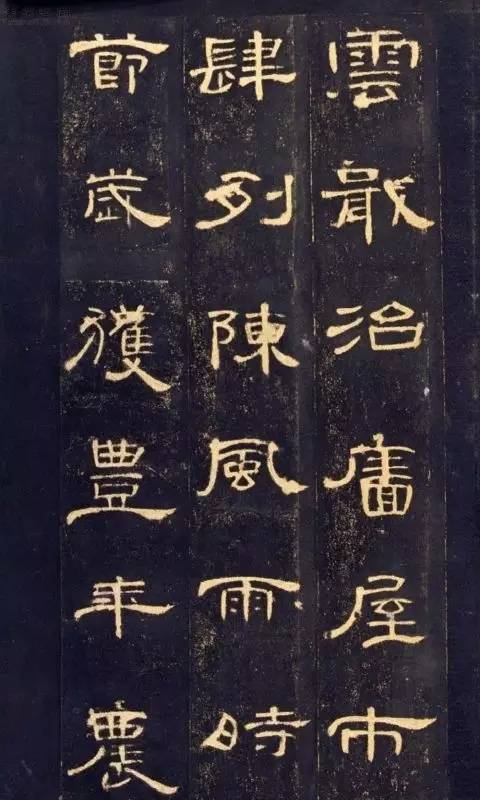 雲散治舊屋市
肆列陳風雨時
節歲獲豊年農